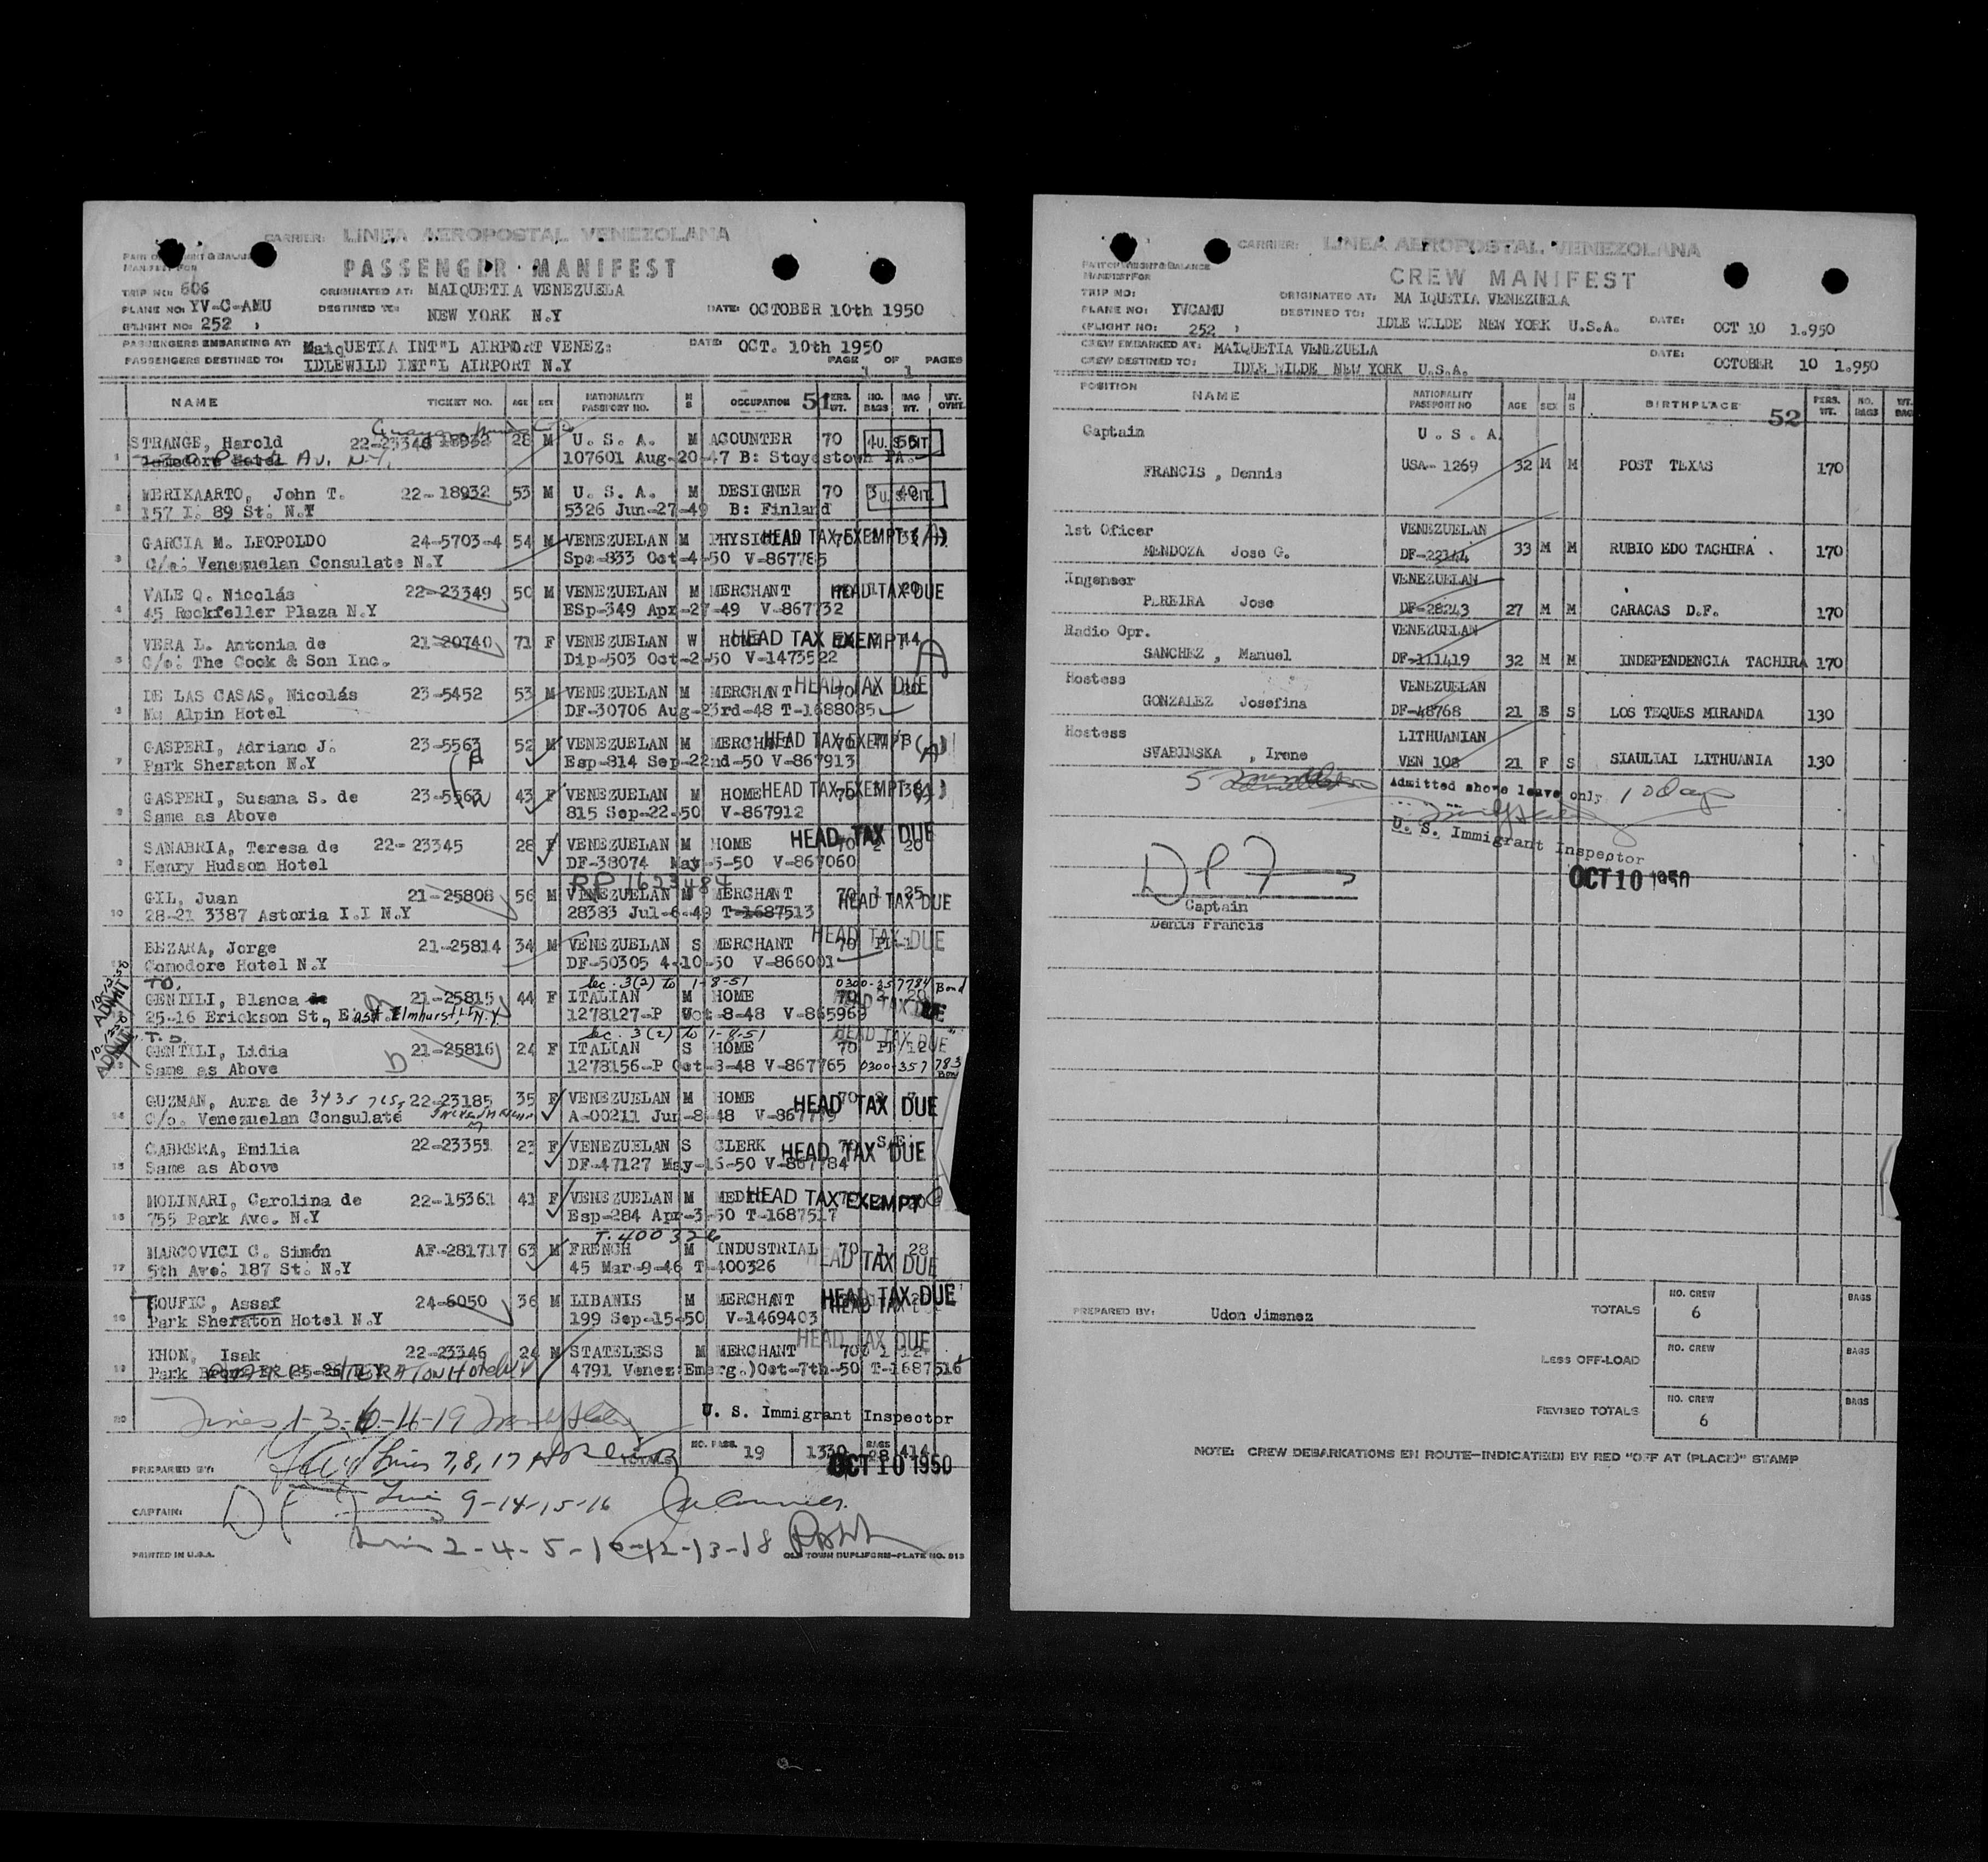 CARRIER: LINEA AEROPOSTAL VENEZOLANA
PASSENGER MANIFEST
MANIFEST FOR
TRIP NO: 606 ORIGINATED AT: MAIQUETIA VENEZUELA
PLANE NO: YV-C-AMU DESTINED TO: NEW YORK N.Y DATE: OCTOBER 10th 1950
(FLIGHT NO: 252 )
PASSENGERS EMBARKING AT: MaiqUETIA INT"L AIRPORT VENEZ: DATE: OCT. 10th 1950
PASSENGERS DESTINED TO: IDLEWILD INT"L AIRPORT N.Y PAGE 1 OF 1 PAGES
NAME TICKET NO. AGE SEX NATIONALITY PASSPORT NO. M S OCCUPATION 51 PERS. WT. NO. BAGS BAG WT. WT. OVHT.
STRANGE, Harold 22-23348 28 M U. S. A. M ACOUNTER 70 1 55 U.S. CIT.
1 Comodore Hotel Av. N.Y. 107601 Aug-20-47 B: Stoyestown PA.
MERIKAARTO, John T. 22-18932 53 M U. S. A. M DESIGNER 70 3 40 U.S. CIT.
2 157 I. 89 St: N.Y 5326 Jun-27-49 B: Finland
GARCIA M. LEOPOLDO 24-5703-4 54 M VENEZUELAN M PHYSICIAN HEAD TAX EXEMPT (A)
3 C/o: Venezuelan Consulate N.Y Spe-833 Oct-4-50 V-867785
VALE Q. Nicolás 22-23349 50 M VENEZUELAN M MERCHANT 70 1 20 HEAD TAX DUE
4 45 Rockfeller Plaza N.Y ESp-349 Apr-27-49 V-867732
VERA L. Antonia de 21-20740 71 F VENEZUELAN W HOME HEAD TAX EXEMPT 44 A
5 C/o: The Cook & Son Inc. Dip-503 Oct-2-50 V-1473522
DE LAS CASAS, Nicolás 23-5452 53 M VENEZUELAN M MERCHANT 70 HEAD TAX DUE
Mc Alpin Hotel DF-30706 Aug-23rd-48 T-1688085
GASPERI, Adriano J. 23-5563 52 M VENEZUELAN M MERCHANT HEAD TAX EXEMPT (A)
7 Park Sheraton N.Y Esp-814 Sep-22nd-50 V-867913
GASPERI, Susana S. de 23-5563 43 F VENEZUELAN M HOME HEAD TAX EXEMPT
Same as Above 815 Sep-22-50 V-867912
SANABRIA, Teresa de 22-23345 28 F VENEZUELAN M HOME 70 2 28 HEAD TAX DUE
9 Henry Hudson Hotel DF-38074 May-5-50 V-867060
RP 1623484
GIL, Juan 21-25808 56 M VENEZUELAN M MERCHANT 70 1 25 HEAD TAX DUE
10 28-21 3387 Astoria I.I N.Y 28383 Jul-6-49 T-1687513
BEZARA, Jorge 21-25814 34 M VENEZUELAN S MERCHANT 70 HEAD TAX DUE
Comodore Hotel N.Y DF-50305 4-10-50 V-866001
Sec. 3(2) to 1-8-51 0300-357784 Bond
ADMIT 10-12-50
GENTILI, Blanca de 21-25815 44 F ITALIAN M HOME 70 2 20 HEAD TAX DUE
25-16 Erickson St, East Elmhurst, N.Y. 1278127-P Oct-8-48 V-865969
Sec. 3(2) to 1-8-51
ADMIT 10-12-50
GENTILI, Lidia D 21-25816 24 F ITALIAN S HOME 70 PT/12 HEAD TAX DUE
Same as Above 1278156-P Oct-8-48 V-867765 0300-357783 Bond
GUZMAN, Aura de 22-23185 35 F VENEZUELAN M HOME 70 HEAD TAX DUE
14 C/o. Venezuelan Consulate A-00211 Jun-8-48 V-867779
CABRERA, Emilia 22-23351 23 F VENEZUELAN S CLERK HEAD TAX DUE
15 Same as Above DF-47127 May-16-50 V-867784
MOLINARI, Carolina de 22-15361 41 F VENEZUELAN M HEAD TAX EXEMPT
16 755 Park Ave. N.Y Esp-284 Apr-3-50 T-1687517
T.400326
MARCOVICI C. Simón AF-281717 63 M FRENCH M INDUSTRIAL 70 1 28 HEAD TAX DUE
17 5th Ave: 187 St: N.Y 45 Mar-9-46 T-400326
TOUFIC, Assaf 24-6050 36 M LIBANIS M MERCHANT HEAD TAX DUE
18 Park Sheraton Hotel N.Y 199 Sep-15-50 V-1469403
KHON, Isak 22-23346 24 M STATELESS M MERCHANT 70 HEAD TAX DUE
19 Park SHERATON Hotel 4791 Venez:Emerg.)Oct-7th-50 T-1687516
20 Lines 1-3-6-11-19 U. S. Immigrant Inspector
Lines 7, 8, 17
NO. PASS. 19 1330 BAGS 28 414
OCT 10 1950
PREPARED BY:
Line 9-14-15-16
CAPTAIN:
Lines 2-4-5-10-12-13-18
PRINTED IN U.S.A. OLD TOWN DUPLIFORM-PLATE NO. 913
CARRIER: LINEA AEROPOSTAL VENEZOLANA
PART OF WEIGHT & BALANCE
MANIFEST FOR CREW MANIFEST
TRIP NO: ORIGINATED AT: MA IQUETIA VENEZUELA
PLANE NO: YVCAMU DESTINED TO: IDLE WILDE NEW YORK U.S.A. DATE: OCT 10 1.950
(FLIGHT NO: 252 )
CREW EMBARKED AT: MAIQUETIA VENEZUELA DATE:
CREW DESTINED TO: IDLE WILDE NEW YORK U.S.A. OCTOBER 10 1.950
POSITION NAME NATIONALITY PASSPORT NO AGE SEX M S BIRTHPLACE 52 PERS. WT. NO. BAGS WT. BAG
Captain U. S. A.
FRANCIS , Dennis USA- 1269 32 M M POST TEXAS 170
1st Oficer VENEZUELAN
MENDOZA Jose G. DF-22144 33 M M RUBIO EDO TACHIRA . 170
Ingeneer VENEZUELAN
PEREIRA Jose DF-28243 27 M M CARACAS D.F. 170
Radio Opr. VENEZUELAN
SANCHEZ , Manuel DF-111419 32 M M INDEPENDENCIA TACHIRA 170
Hostess VENEZUELAN
GONZALEZ Josefina DF-48768 21 S LOS TEQUES MIRANDA 130
Hostess LITHUANIAN
SVABINSKA , Irene VEN 108 21 F S SIAULIAI LITHUANIA 130
5 Admitted shore leave only 10 days
U. S. Immigrant Inspector
OCT 10 1950
Captain
Denis Francis
PREPARED BY: Udon Jimenez
TOTALS NO. CREW 6 BAGS
LESS OFF-LOAD NO. CREW BAGS
REVISED TOTALS NO. CREW 6 BAGS
NOTE: CREW DEBARKATIONS EN ROUTE-INDICATED) BY RED "OFF AT (PLACE)" STAMP